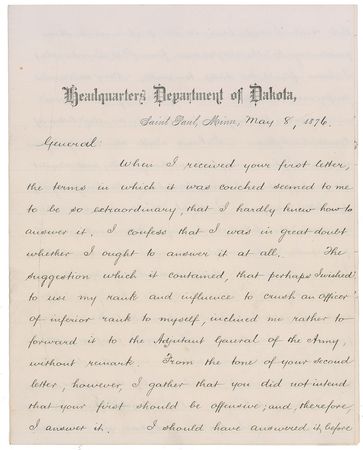 Headquarters Department of Dakota,
Saint Paul, Minn, May 8, 1876.
General:
When I received your first letter,
the terms in which it was couched seemed to me
to be so extraordinary, that I hardly knew how to
answer it. I confess that I was in great doubt
whether I ought to answer it at all. The
suggestion which it contained, that perhaps I wished
to use my rank and influence to crush an officer
of inferior rank to myself, inclined me rather to
forward it to the Adjutant General of the Army,
without remark. From the tone of your second
letter, however, I gather that you did not intend
that your first should be offensive; and, therefore,
I answer it. I should have answered it, before